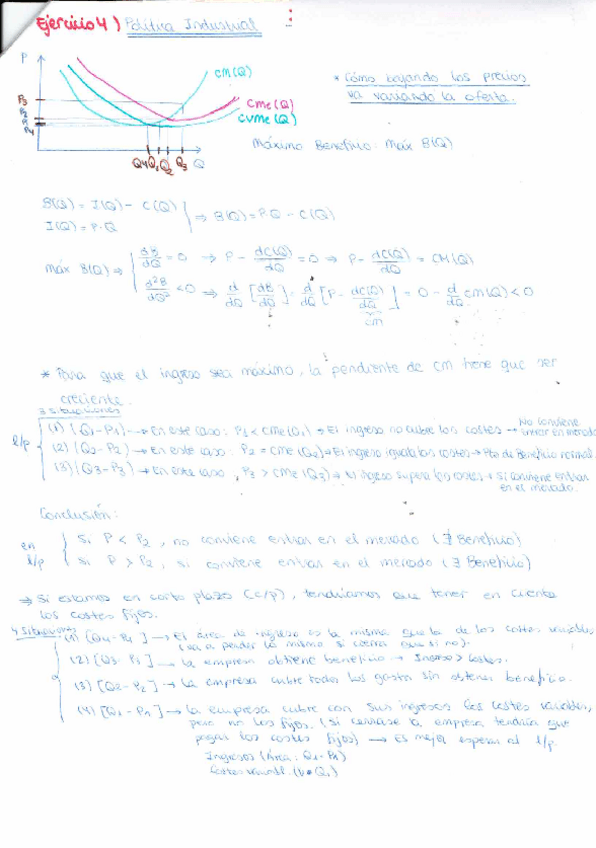 Ejercicio 4) Política Industrial
P
CM(Q)
CMe(Q)
CVMe(Q)
P3
P2
P1
P4
Q4 Q1 Q2 Q3 Q
* Cómo bajando los precios
va variando la oferta.
Máximo Beneficio: Máx B(Q)
B(Q) = I(Q) - C(Q)
I(Q) = P·Q
⇒ B(Q) = P·Q - C(Q)
máx B(Q) ⇒
dB/dQ = 0 → P - dC(Q)/dQ = 0 ⇒ P = dC(Q)/dQ = CM(Q)
d²B/dQ² < 0 ⇒ d/dQ [dB/dQ] = d/dQ [P - dC(Q)/dQ] = 0 - d/dQ CM(Q) < 0
CM
* Para que el ingreso sea máximo, la pendiente de CM tiene que ser
creciente.
3 situaciones
l/p
(1) (Q1-P1) → En este caso: P1 < CMe(Q1) → El ingreso no cubre los costes → No conviene entrar en mercado
(2) (Q2-P2) → En este caso: P2 = CMe(Q2) → El ingreso iguala los costes → Pto de Beneficio normal.
(3) (Q3-P3) → En este caso, P3 > CMe(Q3) → El ingreso supera los costes → Sí conviene entrar
en el mercado.
Conclusión:
en l/p
Si P < P2, no conviene entrar en el mercado (∄ Beneficio)
Si P > P2, si conviene entrar en el mercado (∃ Beneficio)
⇒ Si estamos en corto plazo (c/p), tendríamos que tener en cuenta
los costes fijos.
4 situaciones
(1) [Q4-P4] → El área de ingreso es la misma que la de los costes variables
(va a perder lo mismo si cierra que si no).
(2) [Q3-P3] → La empresa obtiene beneficio → Ingreso > costes.
(3) [Q2-P2] → La empresa cubre todos los gastos sin obtener beneficio.
(4) [Q1-P1] → La empresa cubre con sus ingresos los costes variables,
pero no los fijos. (Si cerrase la empresa tendría que
pagar los costes fijos) → Es mejor esperar al l/p.
Ingresos (Área: Q1·P1)